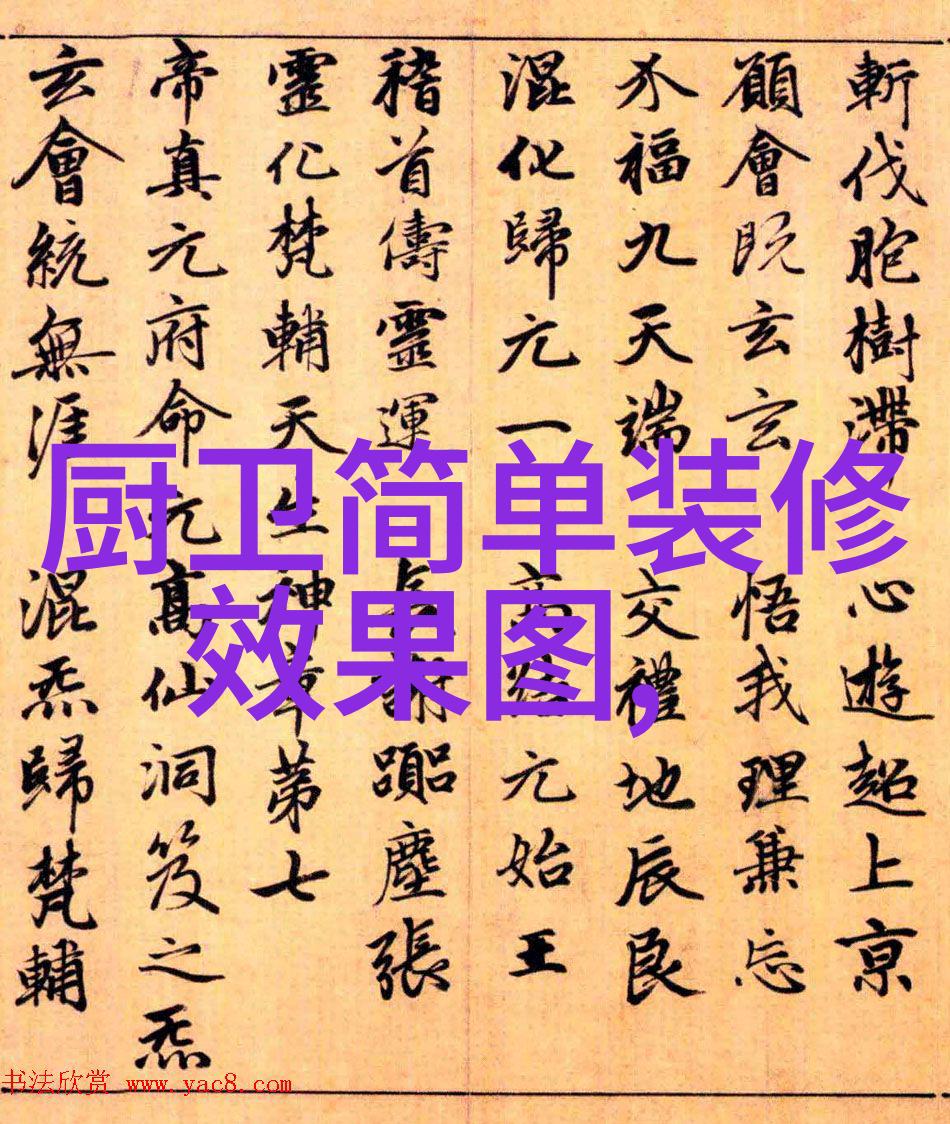 斬伐胞樹滯 心遊超上京
願會既玄玄 悟我理兼忘
介福九天端 交禮地辰良
混化歸元一 高結元始王
稽首儔靈運 長謝塵張
靈化梵輔天生神章第七
帝真元府命元高仙洞笈之炁
玄會統無涯 混炁歸梵輔
厨卫简单装修
效果图,
书法欣赏 www.yac8.com